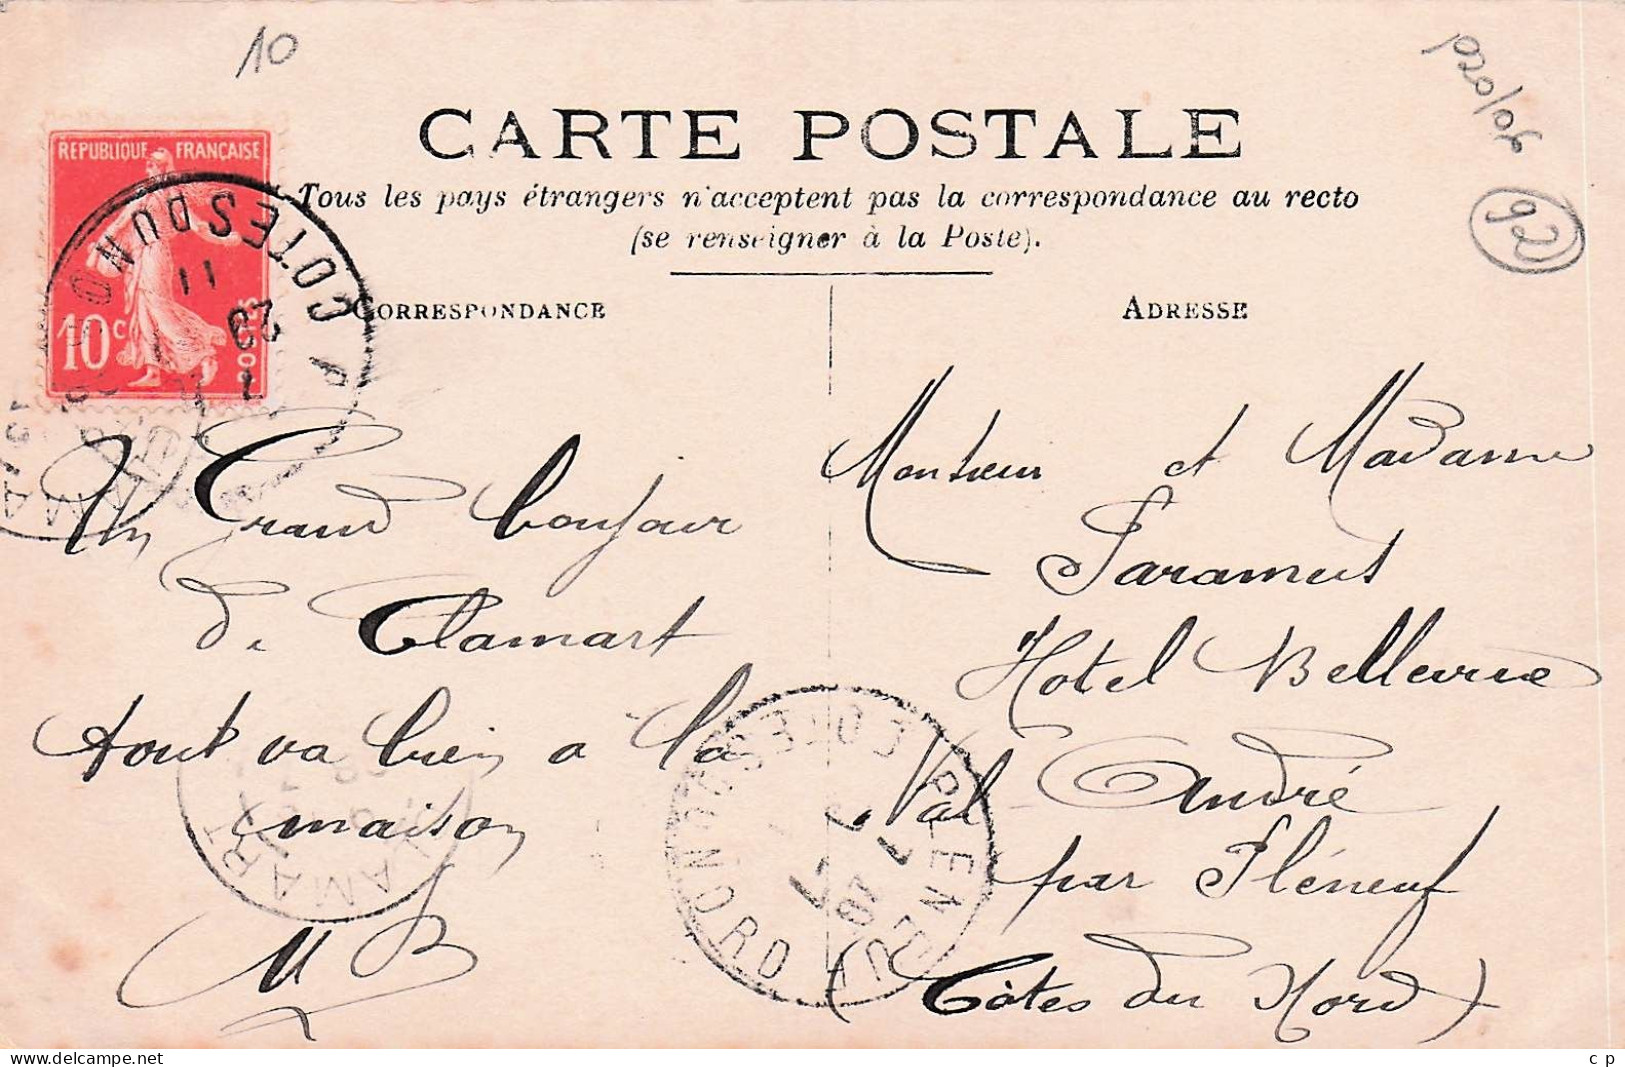 10
90/020d
92
CARTE POSTALE
Tous les pays étrangers n'acceptent pas la correspondance au recto
(se renseigner à la Poste).
REPUBLIQUE FRANÇAISE
10c
POSTES
CORRESPONDANCE
ADRESSE
Un Grand bonjour
de Clamart
tout va bien a la
maison
MB
Monsieur et Madame
Paramus
Hotel Bellevue
Val-André
par Pléneuf
(Côtes du Nord)
PLENEUF
COTES DU NORD
CLAMART
www.delcampe.net
c p